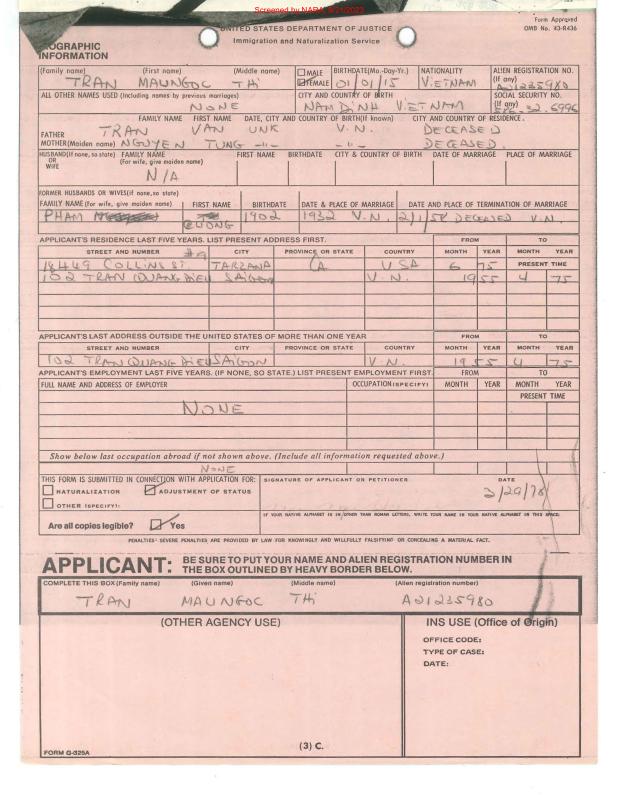 Screened by NARA, 8/21/2023
Form Approved
OMB No. 43-R436
UNITED STATES DEPARTMENT OF JUSTICE
Immigration and Naturalization Service
BIOGRAPHIC
INFORMATION
(Family name) (First name) (Middle name) MALE FEMALE BIRTHDATE(Mo.-Day-Yr.) NATIONALITY ALIEN REGISTRATION NO. (If any)
TRAN MAUNGOC THI 01/01/15 VIETNAM A21235980
ALL OTHER NAMES USED (Including names by previous marriages) CITY AND COUNTRY OF BIRTH SOCIAL SECURITY NO. (If any)
NONE NAM DINH VIETNAM
FAMILY NAME FIRST NAME DATE, CITY AND COUNTRY OF BIRTH(If known) CITY AND COUNTRY OF RESIDENCE.
FATHER TRAN VAN UNK V.N. DECEASED
MOTHER(Maiden name) NGUYEN TUNG -"- -"- DECEASED.
HUSBAND(If none, so state) OR WIFE FAMILY NAME (For wife, give maiden name) FIRST NAME BIRTHDATE CITY & COUNTRY OF BIRTH DATE OF MARRIAGE PLACE OF MARRIAGE
N/A
FORMER HUSBANDS OR WIVES(if none, so state)
FAMILY NAME (For wife, give maiden name) FIRST NAME BIRTHDATE DATE & PLACE OF MARRIAGE DATE AND PLACE OF TERMINATION OF MARRIAGE
PHAM CUONG 1902 1932 V.N. 2/1/58 DECEASED V.N.
APPLICANT'S RESIDENCE LAST FIVE YEARS. LIST PRESENT ADDRESS FIRST. FROM TO
STREET AND NUMBER CITY PROVINCE OR STATE COUNTRY MONTH YEAR MONTH YEAR
18449 COLLINS ST. #9 TARZANA CA USA 6 75 PRESENT TIME
102 TRAN QUANG DIEU SAIGON V.N. 1955 4 75
APPLICANT'S LAST ADDRESS OUTSIDE THE UNITED STATES OF MORE THAN ONE YEAR FROM TO
STREET AND NUMBER CITY PROVINCE OR STATE COUNTRY MONTH YEAR MONTH YEAR
102 TRAN QUANG DIEU SAIGON V.N. 1955 4 75
APPLICANT'S EMPLOYMENT LAST FIVE YEARS. (IF NONE, SO STATE.) LIST PRESENT EMPLOYMENT FIRST. FROM TO
FULL NAME AND ADDRESS OF EMPLOYER OCCUPATION(SPECIFY) MONTH YEAR MONTH YEAR
PRESENT TIME
NONE
Show below last occupation abroad if not shown above. (Include all information requested above.)
NONE
THIS FORM IS SUBMITTED IN CONNECTION WITH APPLICATION FOR: SIGNATURE OF APPLICANT OR PETITIONER DATE
NATURALIZATION ADJUSTMENT OF STATUS 2/29/78
OTHER (SPECIFY):
IF YOUR NATIVE ALPHABET IS IN OTHER THAN ROMAN LETTERS, WRITE YOUR NAME IN YOUR NATIVE ALPHABET IN THIS SPACE:
Are all copies legible? Yes
PENALTIES: SEVERE PENALTIES ARE PROVIDED BY LAW FOR KNOWINGLY AND WILLFULLY FALSIFYING OR CONCEALING A MATERIAL FACT.
APPLICANT: BE SURE TO PUT YOUR NAME AND ALIEN REGISTRATION NUMBER IN
THE BOX OUTLINED BY HEAVY BORDER BELOW.
COMPLETE THIS BOX (Family name) (Given name) (Middle name) (Alien registration number)
TRAN MAUNGOC THI A21235980
(OTHER AGENCY USE) INS USE (Office of Origin)
OFFICE CODE:
TYPE OF CASE:
DATE:
(3) C.
FORM G-325A